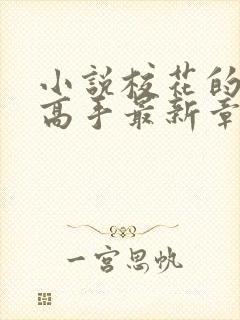 小説校花的
高手最新章
一宫思帆